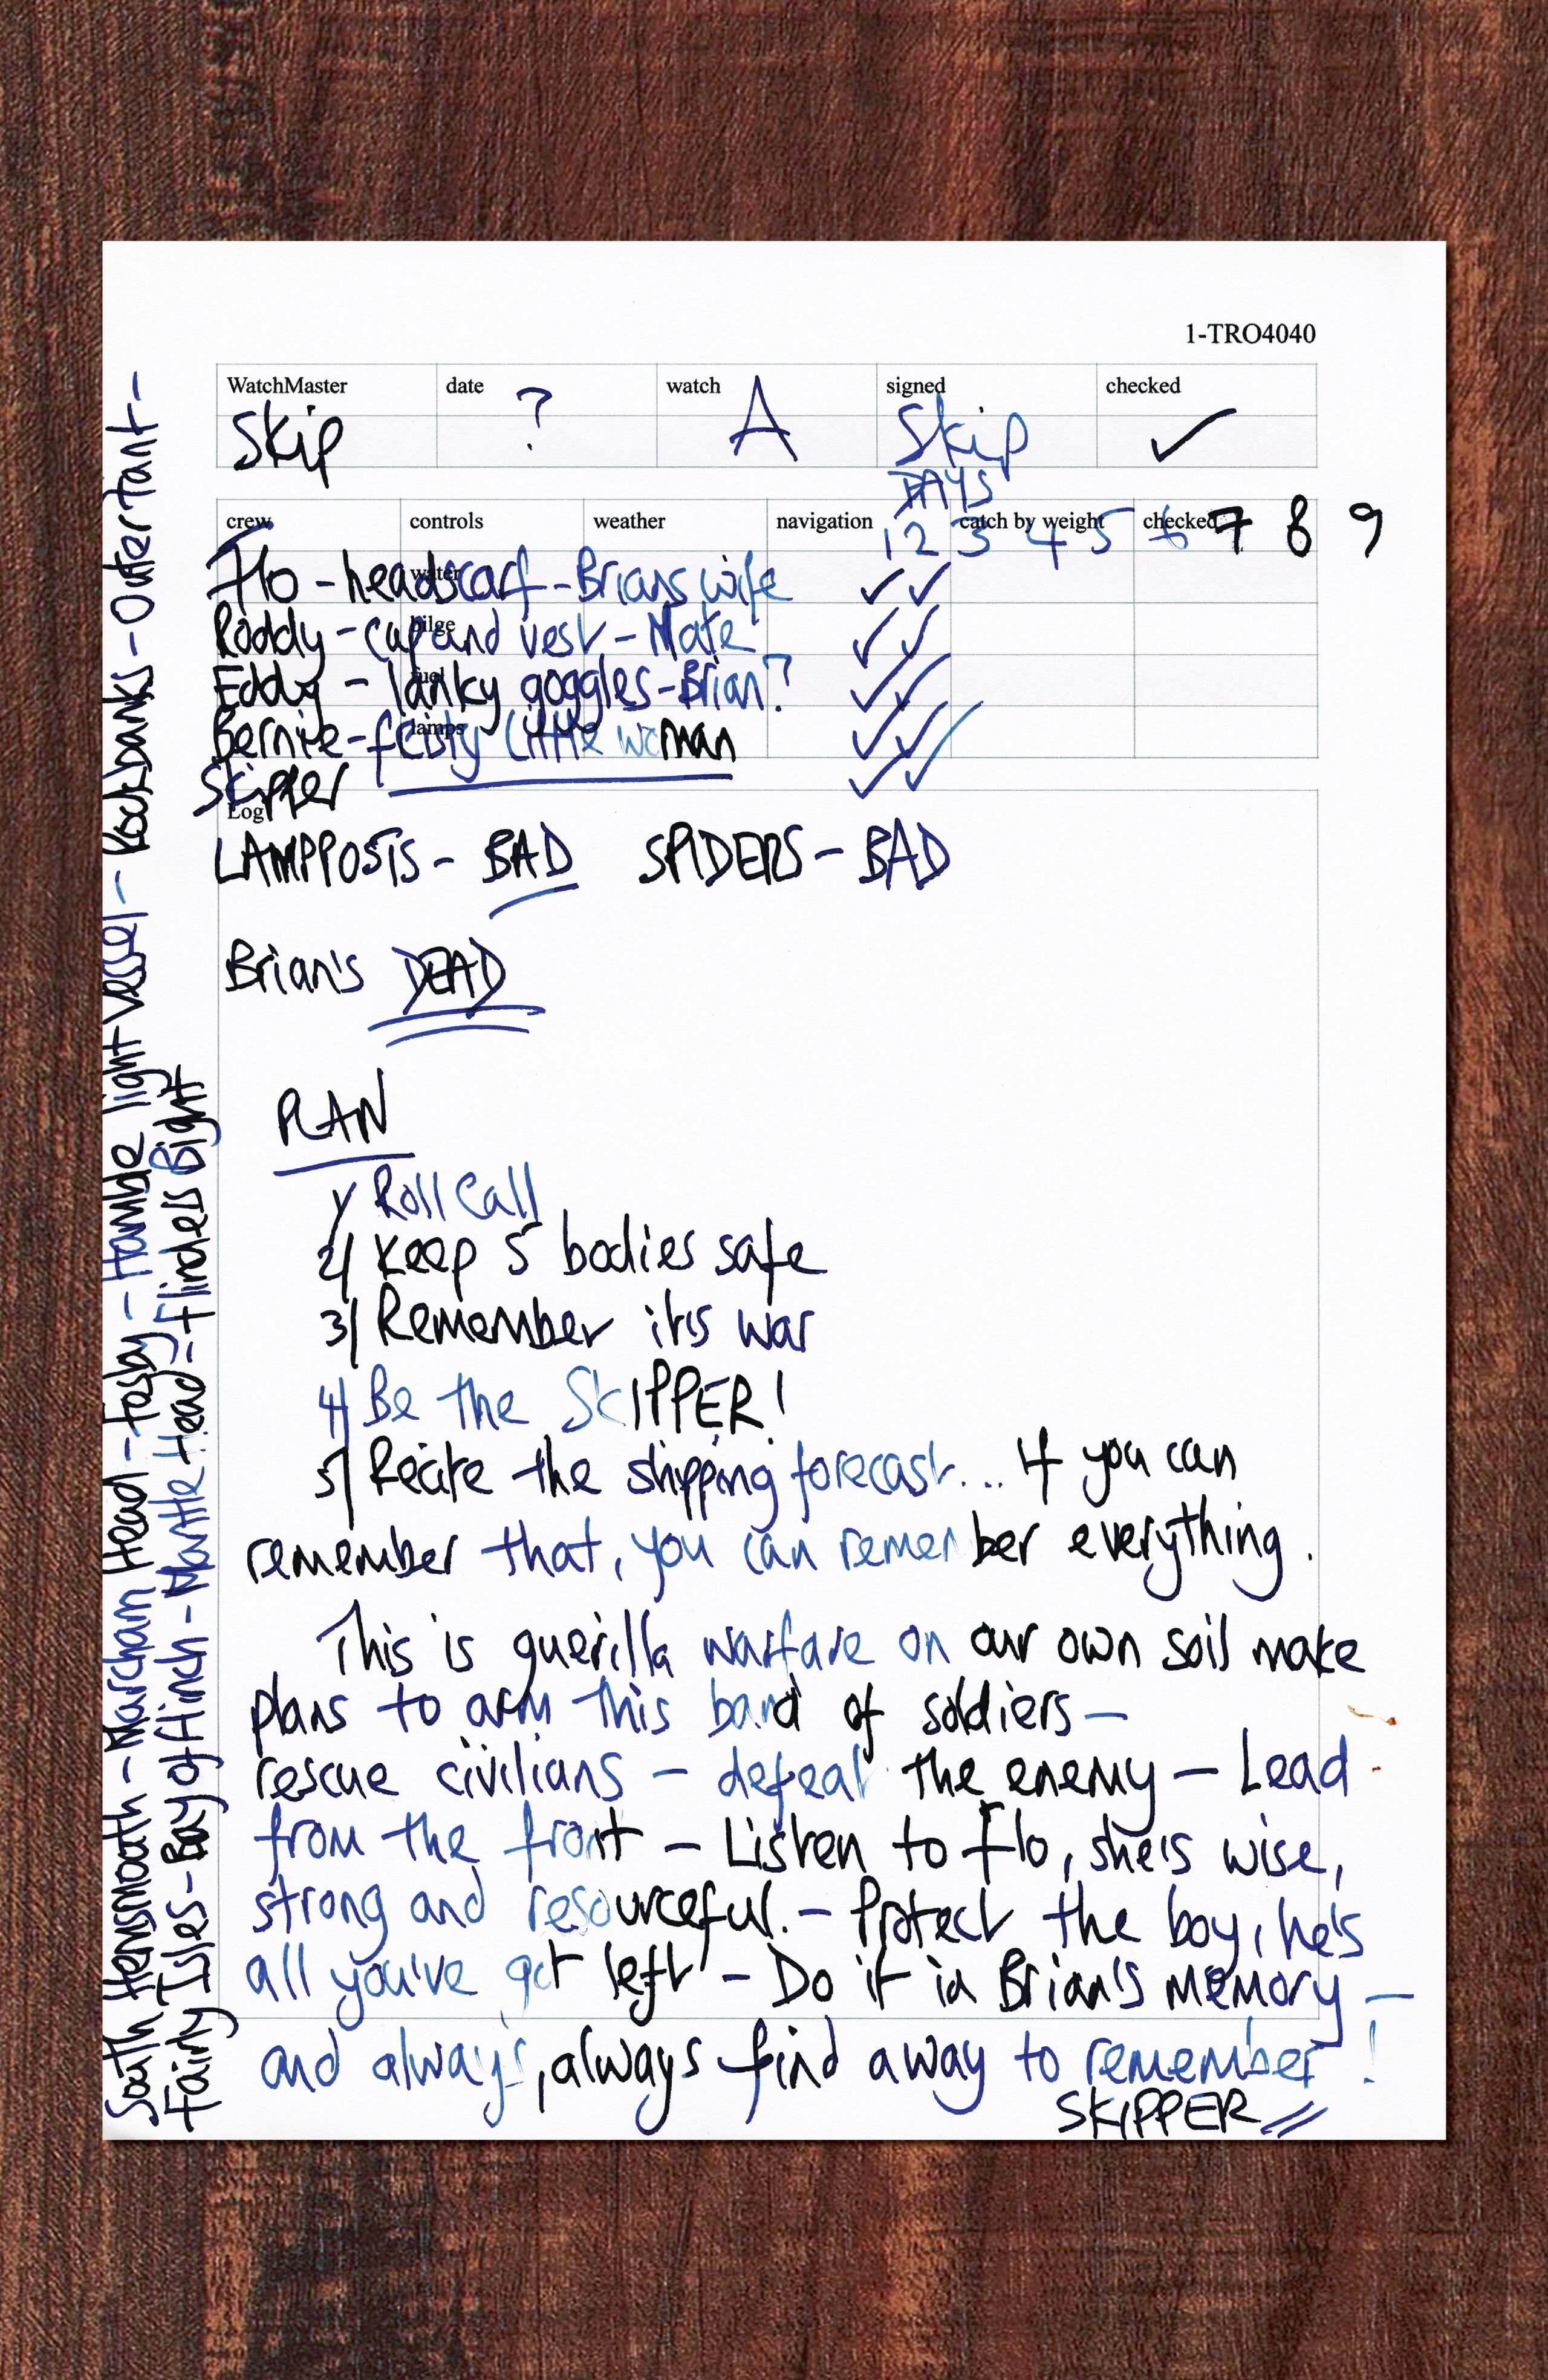 1-TRO4040
WatchMaster date watch signed checked
Skip ? A Skip ✓
DAYS
crew controls weather navigation catch by weight checked
1 2 3 4 5 6 7 8 9
water
Flo - headscarf - Brians wife ✓ ✓
bilge
Roddy - cap and vest - Mate ✓ ✓
fuel
Eddy - lanky goggles - Brian? ✓ ✓
lamps
Bernie - feisty little woman ✓ ✓
Skipper ✓ ✓
Log
LAMPPOSTS - BAD SPIDERS - BAD
Brian's DEAD
PLAN
1/ Roll Call
2/ Keep 5 bodies safe
3/ Remember it's war
4/ Be the SKIPPER!
5/ Recite the shipping forecast... If you can
remember that, you can remember everything.
This is guerilla warfare on our own soil make
plans to arm this band of soldiers -
rescue civilians - defeat the enemy - Lead
from the front - Listen to Flo, she's wise,
strong and resourceful. - Protect the boy, he's
all you've got left - Do it in Brian's memory -
and always, always find a way to remember!
SKIPPER
South Hemsmouth - Marcham Head - Fasby - Hamble light vessel - Rockbanks - Outer Tant -
Fairly Isles - Bay of Flinch - Mantle Head - Flinders Bight